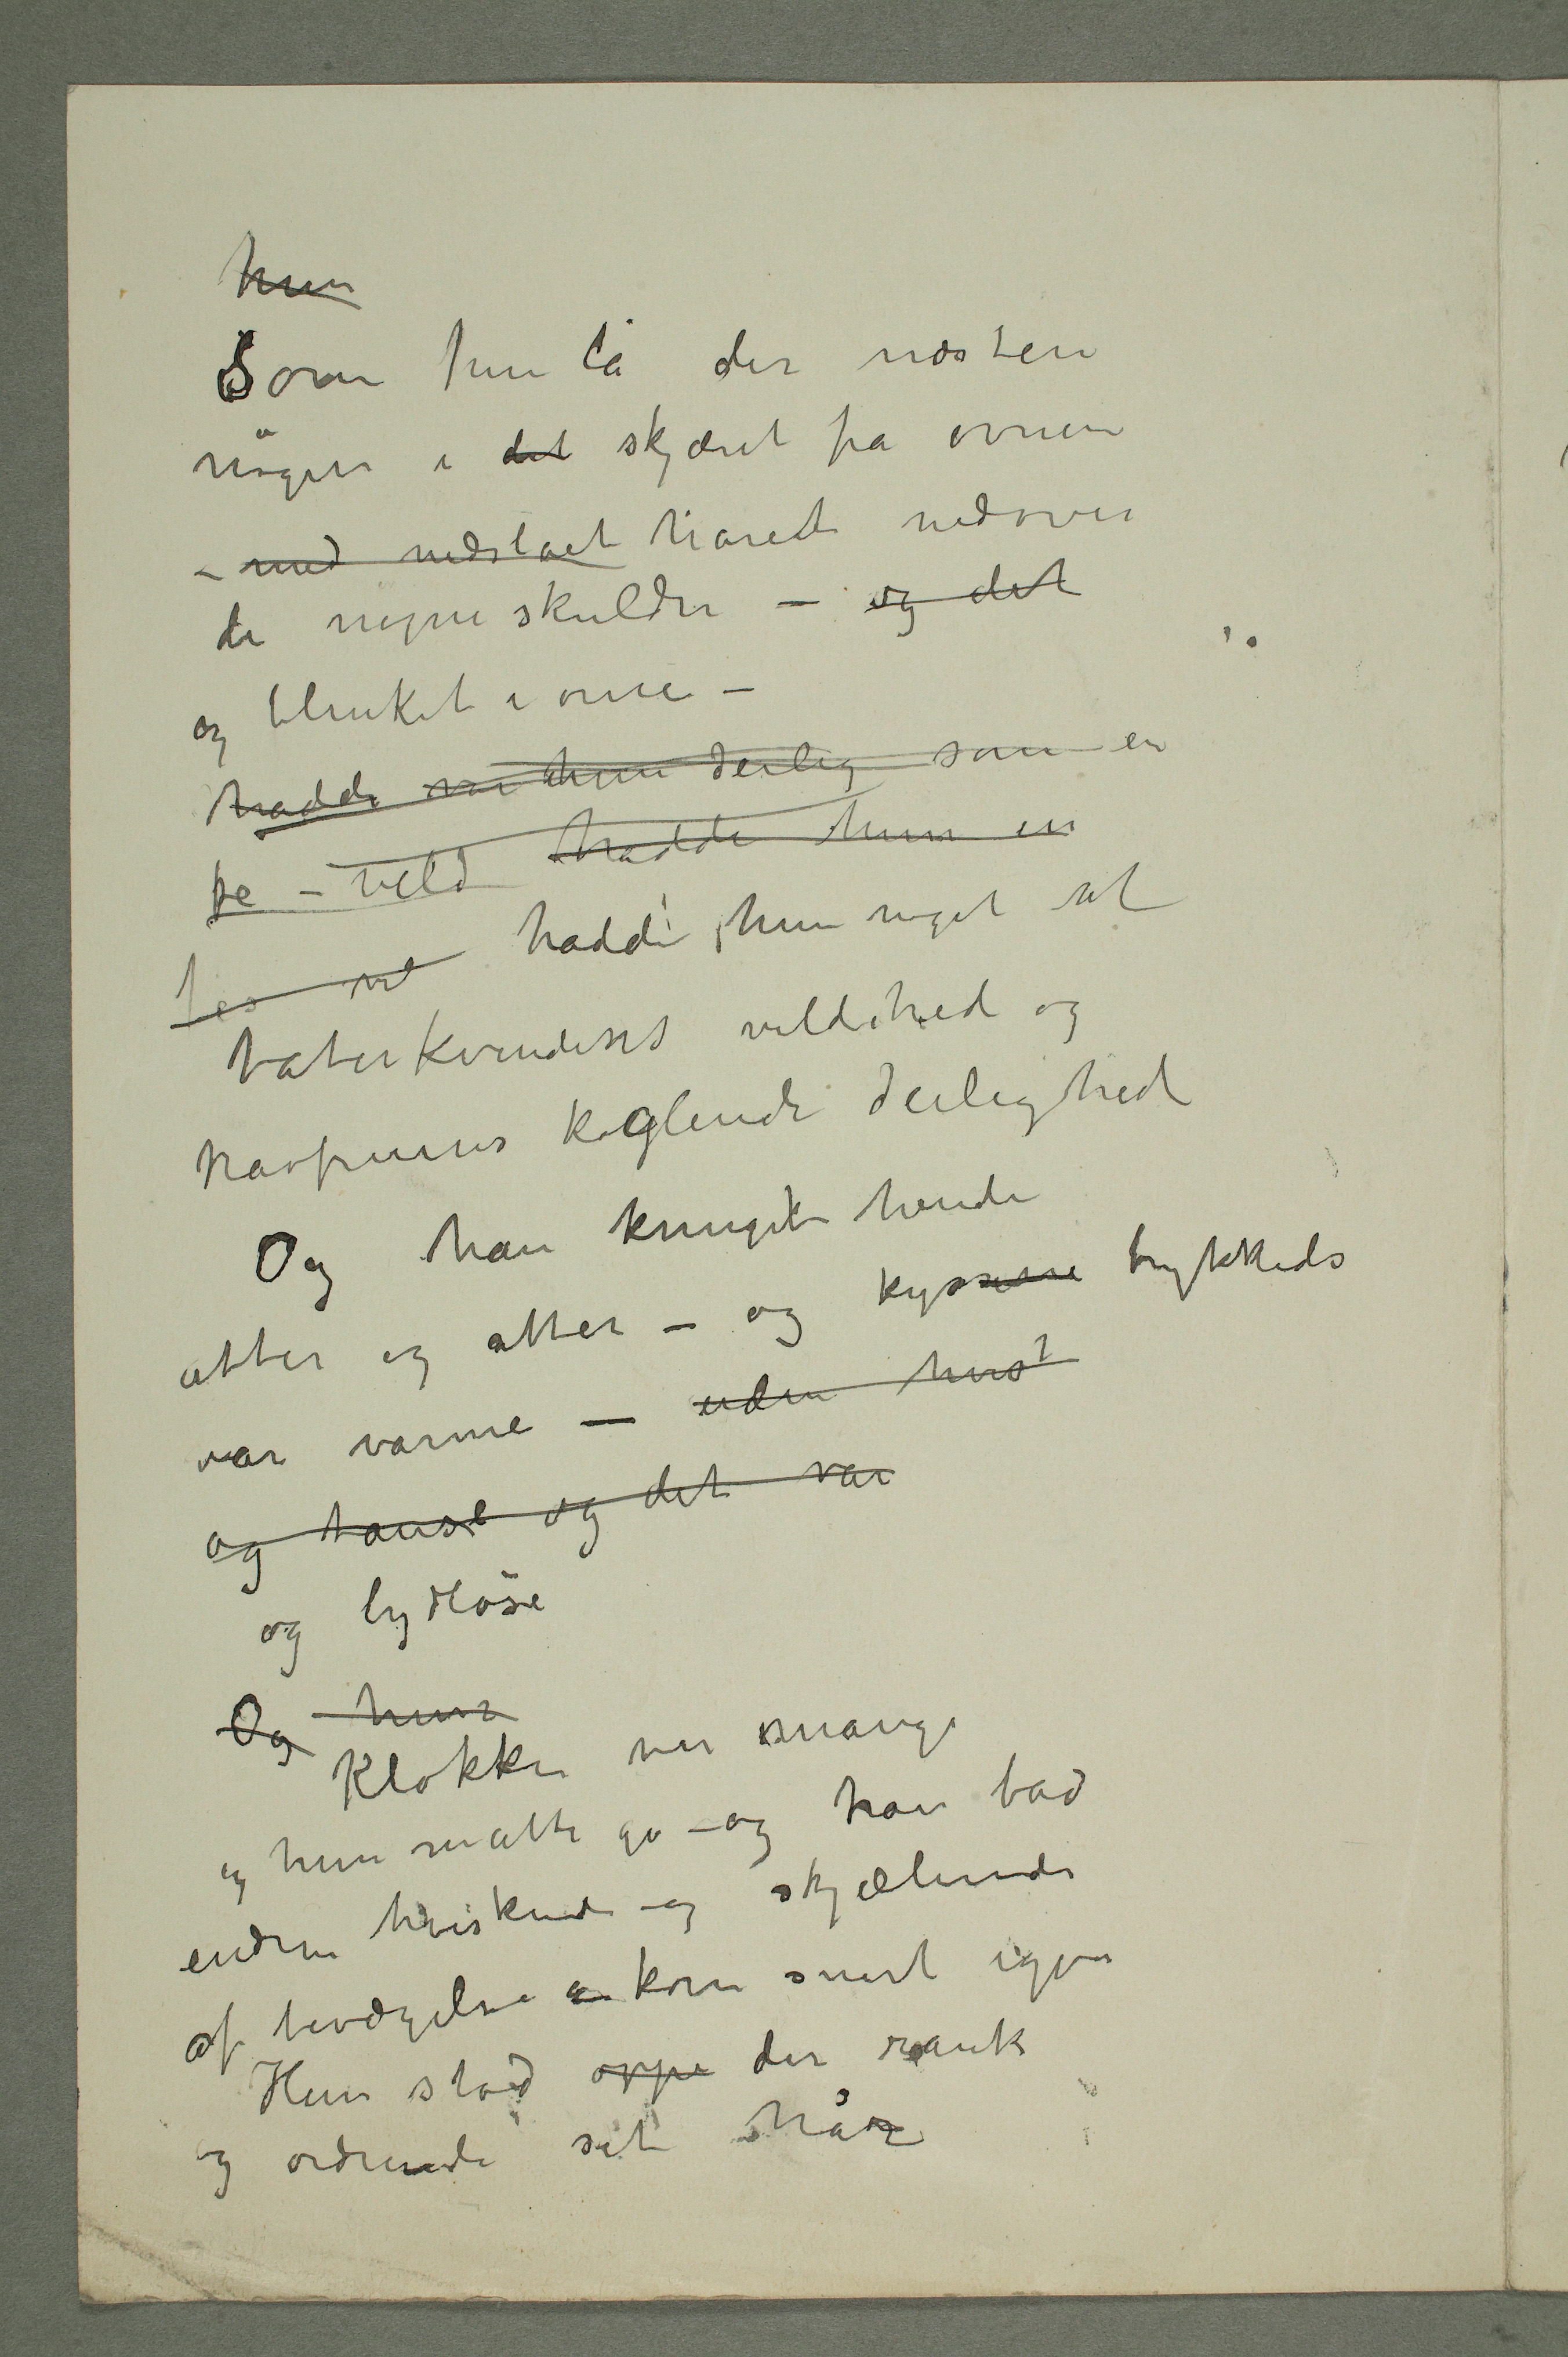 hun
Som hun lå der næsten
nögen i det skjæret fra ovnen
– med nedslaet håret nedover
de nøgne skuldre – og det
og blinket i øinene –
hadde var hun deilig som en
fe – vild hadde hun en
fes vil hadde hun noget at
taterkvindens vildhed og
havfruens koglende deilighed
Og han knuget hende
atter og atter – og kyssene trykkeds
var varme – uden hvis
og tause og det var
og lydløse
Og hun
Klokken var mange
og hun måtte gå – og han bad
endnu hviskende og skjælvende
af bevægelse a kom snart igjen
Hun stod oppe der rank
og ordnende sit hår